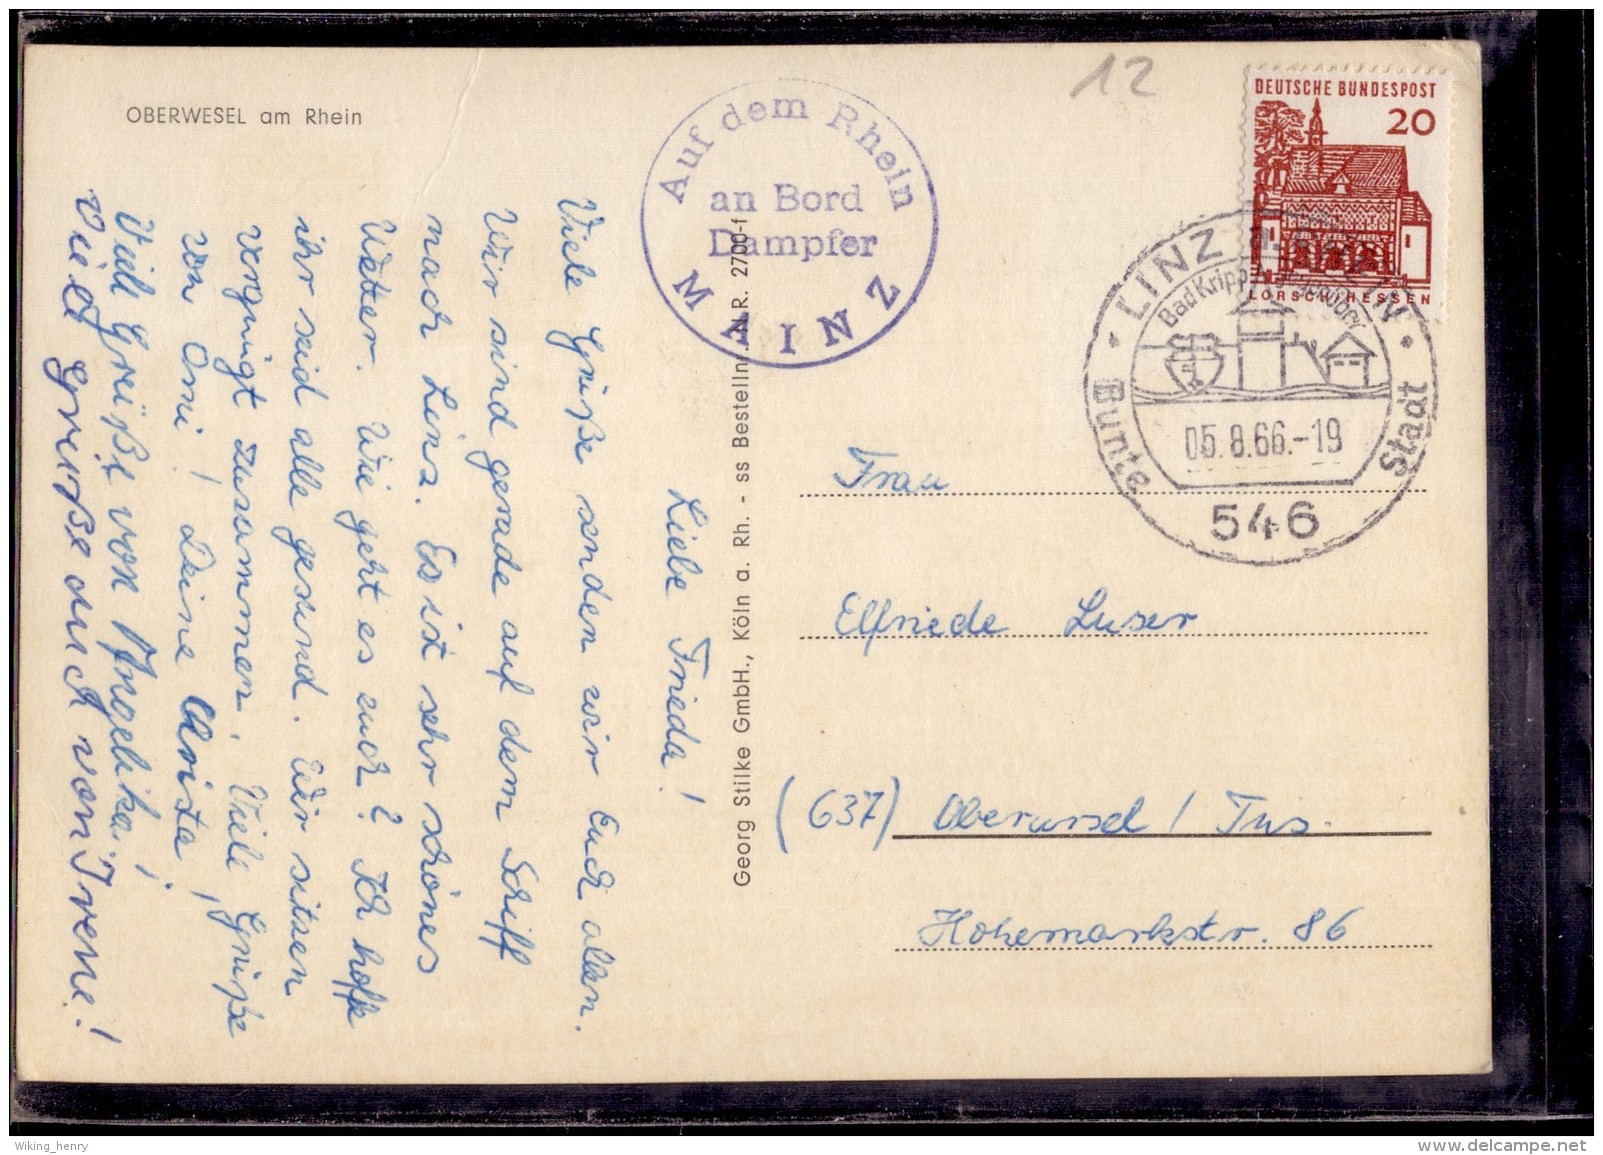 OBERWESEL am Rhein
12
Auf dem Rhein
an Bord
Dampfer
MAINZ
DEUTSCHE BUNDESPOST
20
LORSCH/HESSEN
LINZ
Bad Kripp
Bunte Stadt
05.8.66.-19
546
Liebe Frieda!
Viele Grüße senden wir Euch allen.
Wir sind gerade auf dem Schiff
nach Linz. Es ist sehr schönes
Wetter. Wie geht es euch? Ich hoffe
ihr seid alle gesund. Wir sitzen
vergnügt zusammen. Viele Grüße
von Omi! Deine Christa!
Viele Grüße von Angelika!
Viele Grüße auch von Irene!
Georg Stilke GmbH., Köln a. Rh. - ss Bestelln. A.R. 2700-f
Frau
Elfriede Luser
(637) Oberursel / Tns.
Hohemarkstr. 86
Wiking_henry
www.delcampe.net